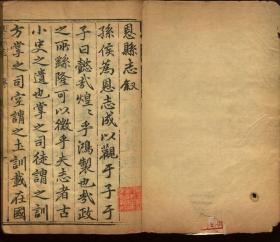 恩縣志叙
孫侯蒿恩志成以觀于子于
子曰懿哉煌〻乎鴻製也哉政
之所繇隆可以徵乎夫志者古
小史之遺也掌之司徒謂之訓
方掌之司空謂之土訓載在國